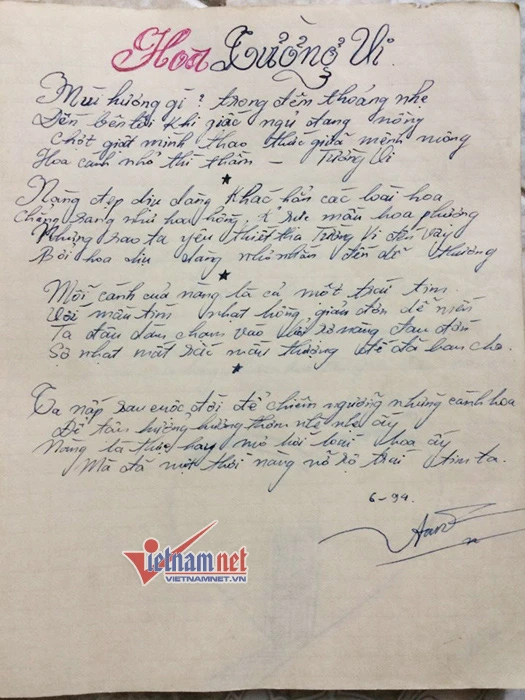 Hoa Tường Vi
Mùi hương gì? trong đêm thoảng nhẹ
Đến bên tôi khi giấc ngủ đang nồng
Chợt giật mình thao thức giữa mênh mông
Hoa cánh nhỏ thì thầm - Tường Vi
Nàng đẹp dịu dàng khác hẳn các loài hoa
Chẳng sang như hoa hồng, k rực màu hoa phượng
Nhưng sao ta yêu thiết tha Tường Vi đến vậy
Bởi hoa dịu dàng nhỏ nhắn đến dễ thương
Mỗi cánh của nàng là cả một trái tim
Với màu tím nhạt hồng, giản đơn dễ mến
Ta đâu dám chạm vào vì sợ nàng đau đớn
Sợ nhạt mất sắc màu thượng đế đã ban cho
Ta nấp sau cuộc đời để chiêm ngưỡng những cánh hoa
Để tận hưởng hương thơm nhè nhẹ ấy
Nàng là thực hay mơ hỡi loài hoa ấy
Mà đã một thời nàng nở rộ trái tim ta.
6-99
Vietnamnet
VIETNAMNET.VN